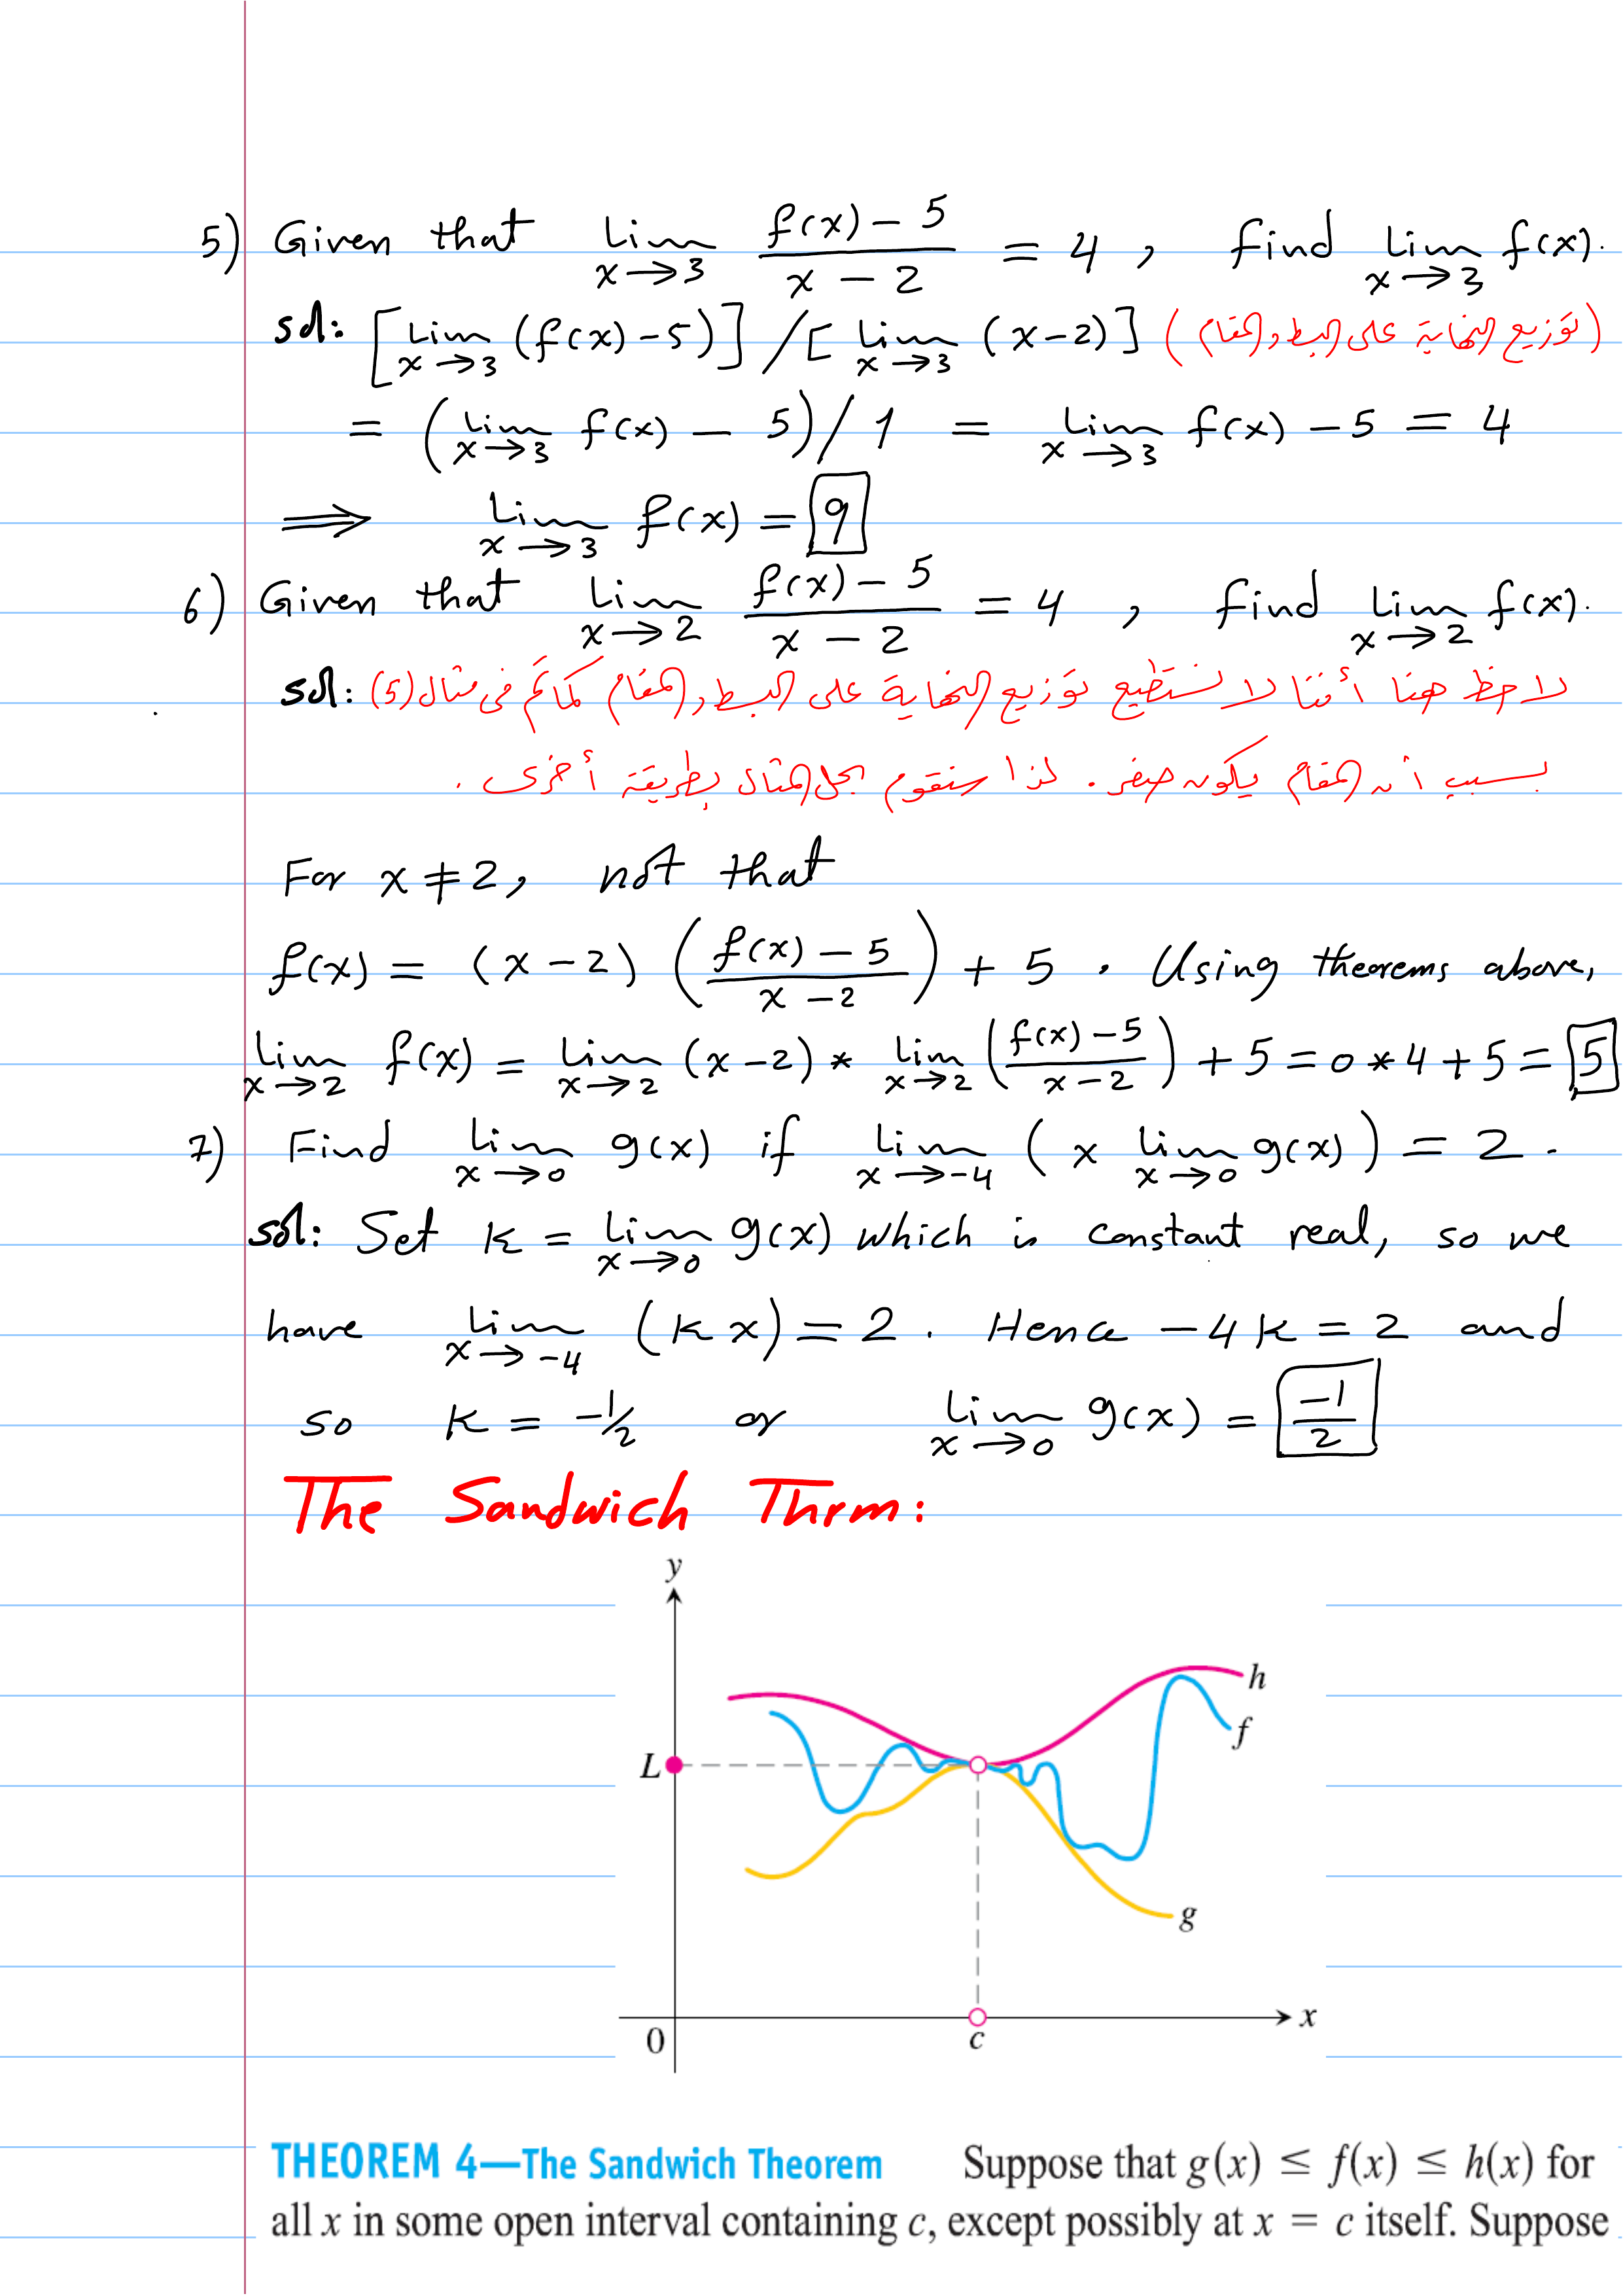 5) Given that lim_{x→3} (f(x) − 5)/(x − 2) = 4 , find lim_{x→3} f(x).
sol: [lim_{x→3} (f(x) − 5)] / [lim_{x→3} (x−2)] (توزيع النهاية على البسط والمقام)
= (lim_{x→3} f(x) − 5)/1 = lim_{x→3} f(x) − 5 = 4
⟹ lim_{x→3} f(x) = 9
6) Given that lim_{x→2} (f(x) − 5)/(x − 2) = 4 , find lim_{x→2} f(x).
sol: لاحظ هنا أننا لا نستطيع توزيع النهاية على البسط والمقام كما تم في مثال (5)
بسبب أن المقام يكون صفر. لذا سنقوم بحل المثال بطريقة أخرى.
For x ≠ 2, not that
f(x) = (x − 2) ((f(x) − 5)/(x − 2)) + 5 . Using theorems above,
lim_{x→2} f(x) = lim_{x→2} (x−2) * lim_{x→2} ((f(x) − 5)/(x − 2)) + 5 = 0 * 4 + 5 = 5
7) Find lim_{x→0} g(x) if lim_{x→−4} (x lim_{x→0} g(x)) = 2 .
sol: Set K = lim_{x→0} g(x) which is constant real, so we
have lim_{x→−4} (K x) = 2 . Hence −4K = 2 and
so K = −1/2 or lim_{x→0} g(x) = −1/2
The Sandwich Thrm:
y
h
f
L
g
x
0
c
THEOREM 4—The Sandwich Theorem Suppose that g(x) ≤ f(x) ≤ h(x) for
all x in some open interval containing c, except possibly at x = c itself. Suppose